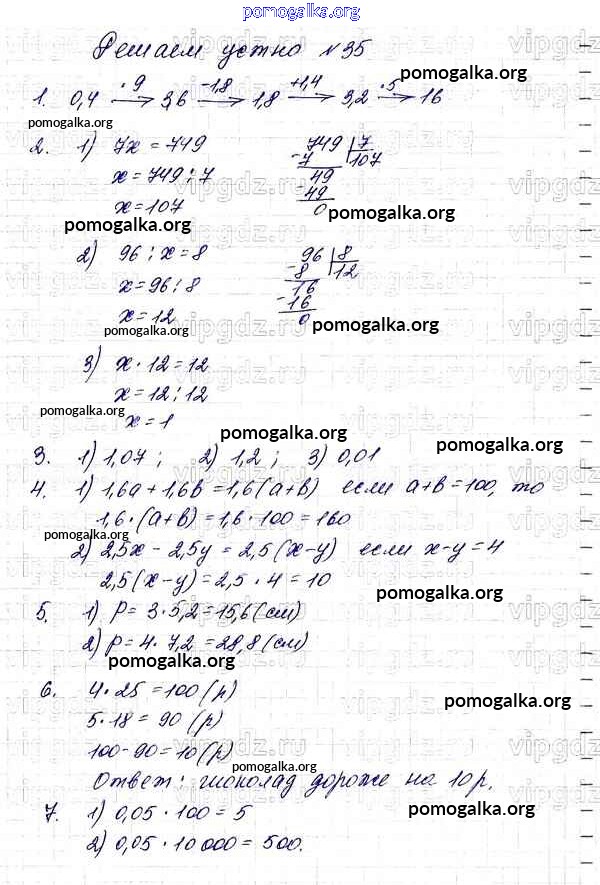 pomogalka.org
Решаем устно №35
pomogalka.org
1. 0,4 —·9→ 3,6 —-1,8→ 1,8 —+1,4→ 3,2 —·5→ 16
pomogalka.org
2. 1) 7x = 749 749 | 7
x = 749 : 7 -7 | 107
49
-49
x = 107 0
pomogalka.org pomogalka.org
2) 96 : x = 8 96 | 8
x = 96 : 8 -8 | 12
16
-16
x = 12 0
pomogalka.org pomogalka.org
3) x · 12 = 12
x = 12 : 12
pomogalka.org
x = 1
pomogalka.org pomogalka.org
3. 1) 1,07 ; 2) 1,2 ; 3) 0,01
4. 1) 1,6a + 1,6b = 1,6(a+b) если a+b = 100, то
1,6 · (a+b) = 1,6 · 100 = 160
pomogalka.org
2) 2,5x - 2,5y = 2,5(x-y) если x-y = 4
2,5(x-y) = 2,5 · 4 = 10
pomogalka.org
5. 1) P = 3 · 5,2 = 15,6 (см)
2) P = 4 · 7,2 = 28,8 (см)
pomogalka.org
6. 4 · 25 = 100 (р)
pomogalka.org
5 · 18 = 90 (р)
100 - 90 = 10 (р)
pomogalka.org
Ответ: шоколад дороже на 10 р.
7. 1) 0,05 · 100 = 5
pomogalka.org
2) 0,05 · 10 000 = 500.
vipgdz.ru